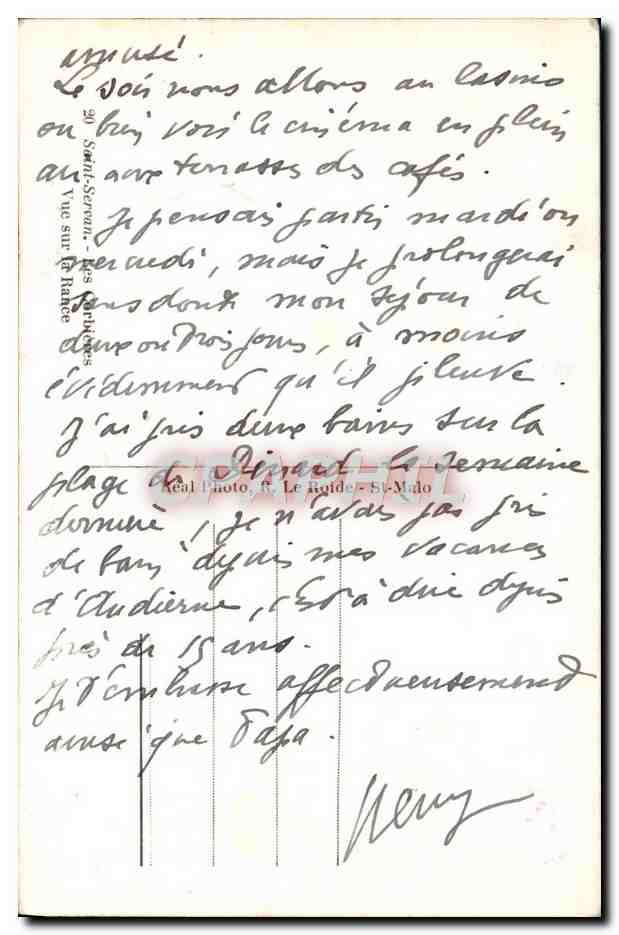 amusé.
Le soir nous allons au Casino
ou bien voir le cinéma en plein
air aux terrasses des cafés.
Je pensais partir mardi ou
mercredi, mais je prolongerai
sans doute mon séjour de
deux ou trois jours, à moins
évidemment qu'il pleuve.
J'ai pris deux bains sur la
plage de Dinard la semaine
dernière, je n'avais pas pris
de bains depuis mes vacances
d'Audierne, c'est à dire depuis
près de 15 ans.
Je t'embrasse affectueusement
ainsi que Papa.
Henry
20 Saint-Servan. - Les Corbières
Vue sur la Rance
Réal Photo, R. Le Roide - St-Malo